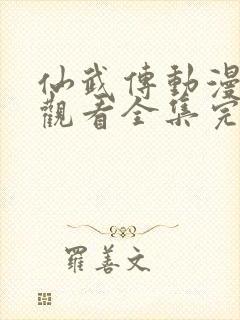 仙武傳動漫
觀看全集完
羅善文